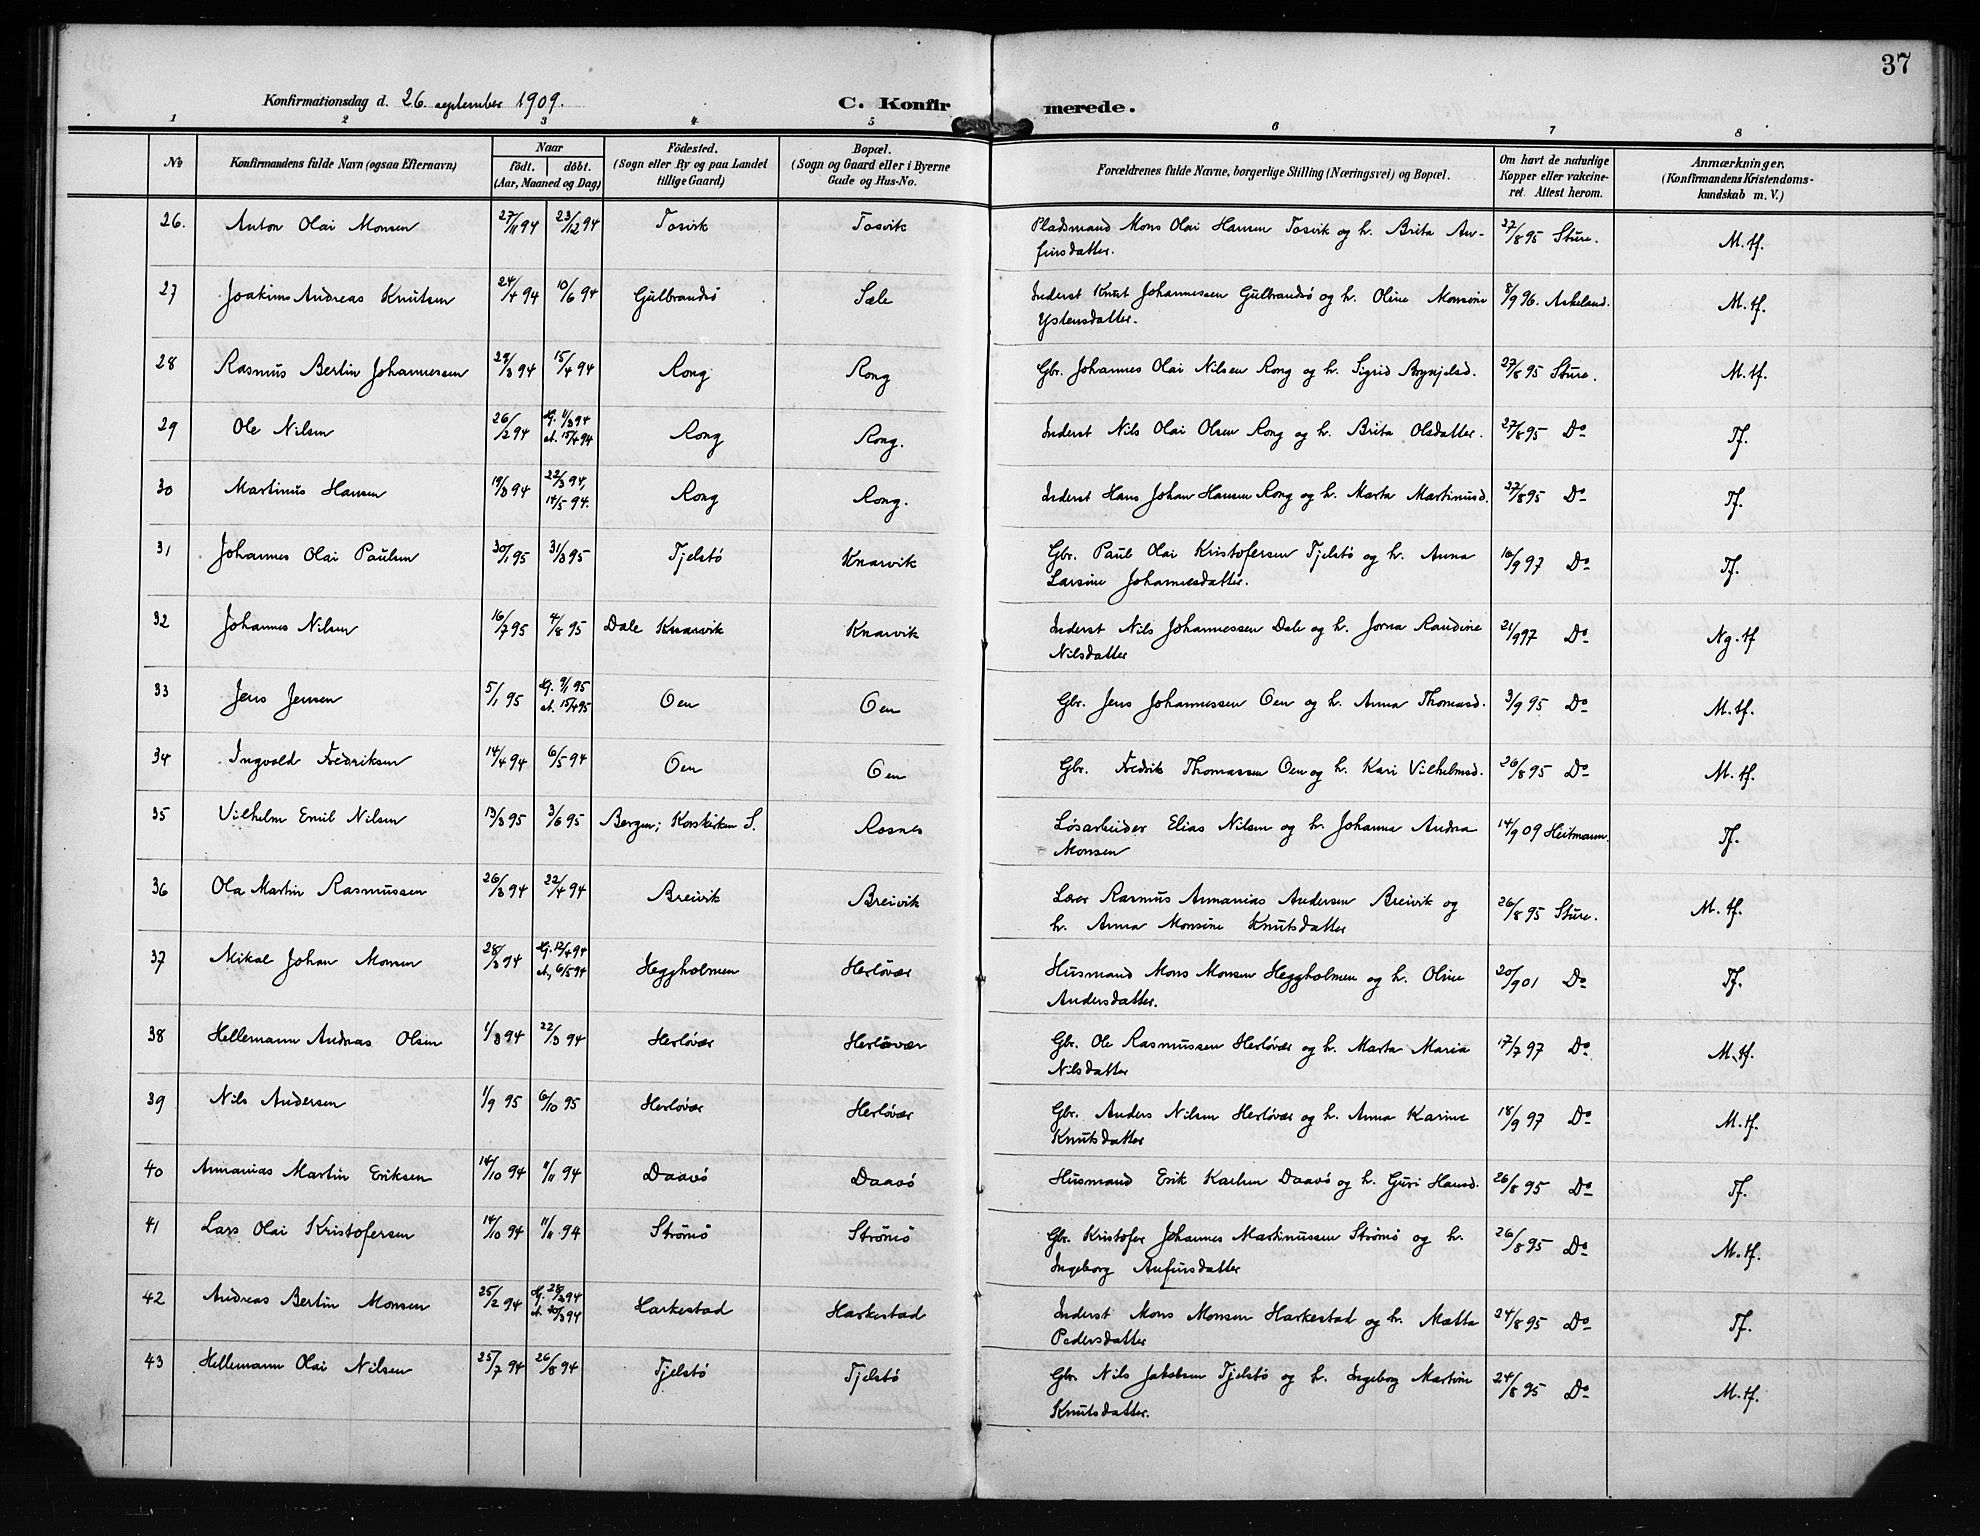 37
Konfirmationsdag d. 26. september 1909.
C. Konfirmerede.
1 2 3 4 5 6 7 8
No
Konfirmandens fulde Navn (ogsaa Efternavn)
Naar
født. døbt.
(Aar, Maaned og Dag)
Fødested.
(Sogn eller By og paa Landet
tillige Gaard)
Bopæl.
(Sogn og Gaard eller i Byerne
Gade og Hus-No.
Forældrenes fulde Navne, borgerlige Stilling (Næringsvei) og Bopæl.
Om havt de naturlige
Kopper eller vakcine-
ret. Attest herom.
Anmærkninger.
(Konfirmandens Kristendoms-
kundskab m. V.)
26. Anton Olai Monsen 27/11 94 23/12 94 Tosvik Tosvik Pladsmand Mons Olai Hansen Tosvik og h. Brita An- 27/8 95 Sture. M. tf.
finsdatter.
27 Joakim Andreas Knutsen 24/4 94 10/6 94 Gulbrandsö Sæle Inderst Knut Johannessen Gulbrandsö og h. Oline Monsine 8/9 96. Askeland. M. tf.
Ystensdatter.
28 Rasmus Bertin Johannessen 29/3 94 15/4 94 Rong Rong Gbr. Johannes Olai Nilsen Rong og h. Sigrid Brynjelsd. 27/8 95 Sture. M. tf.
29 Ole Nilsen 26/2 94 Hj. 1/3 94 Rong Rong. Inderst Nils Olai Olsen Rong og h. Brita Olsdatter. 27/8 95 Do Tf.
st. 15/4 94
30 Martinus Hansen 19/3 94 22/3 94, Rong Rong. Inderst Hans Johan Hansen Rong og h. Marta Martinusd. 27/8 95 Do Tf.
14/5 94.
31 Johannes Olai Paulsen 30/1 95 31/3 95 Tjelstö Knarvik Gbr. Paul Olai Kristofersen Tjelstö og h. Anna 16/9 97 Do Tf.
Larsine Johannesdatter.
32 Johannes Nilsen 16/7 95 4/8 95 Dale Knarvik Knarvik Inderst Nils Johannessen Dale og h. Jorna Randine 21/9 97 Do Ng. tf
Nilsdatter
33 Jens Jensen 5/1 95 Hj. 9/1 95 Oen Oen Gbr. Jens Johannessen Oen og h. Anna Thomasd. 3/9 95 Do M. tf.
st. 15/4 95
34 Ingvald Fredriksen 14/4 94 6/5 94 Oen Oen Gbr. Fredrik Thomassen Oen og h. Kari Vilhelmsd. 26/8 95 Do M. tf.
35 Vilhelm Emil Nilsen 13/3 95 3/6 95 Bergen; Korskirken S. Rosnes Løsarbeider Elias Nilsen og h. Johanna Andrea 14/9 09 Heitmann. Tf.
Monsen
36 Ola Martin Rasmussen 26/3 94 22/4 94 Breivik Breivik Lærer Rasmus Annanias Andersen Breivik og 26/8 95 Sture. M. tf.
h. Anna Monsine Knutsdatter
37 Mikal Johan Monsen 28/3 94 Hj. 12/4 94 Heggholmen Herlövær Husmand Mons Monsen Heggholmen og h. Oline 20/9 01 Do Tf.
st. 6/5 94 Andersdatter.
38 Hellemann Andreas Olsen 1/3 94 22/3 94 Herlövær Herlövær Gbr. Ole Rasmussen Herlövær og h. Marta Maria 17/7 97 Do M. tf.
Nilsdatter
39 Nils Andersen 1/9 95 6/10 95 Herlövær Herlövær Gbr. Anders Nilsen Herlövær og h. Anna Karine 18/9 97 Do M. tf.
Knutsdatter
40 Annanias Martin Eriksen 14/10 94 11/11 94 Daavö Daavö Husmand Erik Karlsen Daavö og h. Guri Hansd. 26/8 95 Do Tf.
41 Lars Olai Kristofersen 14/10 94 11/11 94 Strömö Strömö Gbr. Kristofer Johannes Martinussen Strömö og h. 26/8 95 Do M. tf.
Ingeborg Anfinsdatter
42 Andreas Bertin Monsen 25/2 94 Hj. 28/2 94 Harkestad Harkestad Inderst Mons Monsen Harkestad og h. Matta 24/8 95 Do Tf.
Pedersdatter
43 Hellemann Olai Nilsen 25/7 94 26/8 94 Tjelstö Tjelstö Gbr. Nils Jakobsen Tjelstö og h. Ingeborg Martine 24/8 95 Do M. tf.
Knutsdatter.